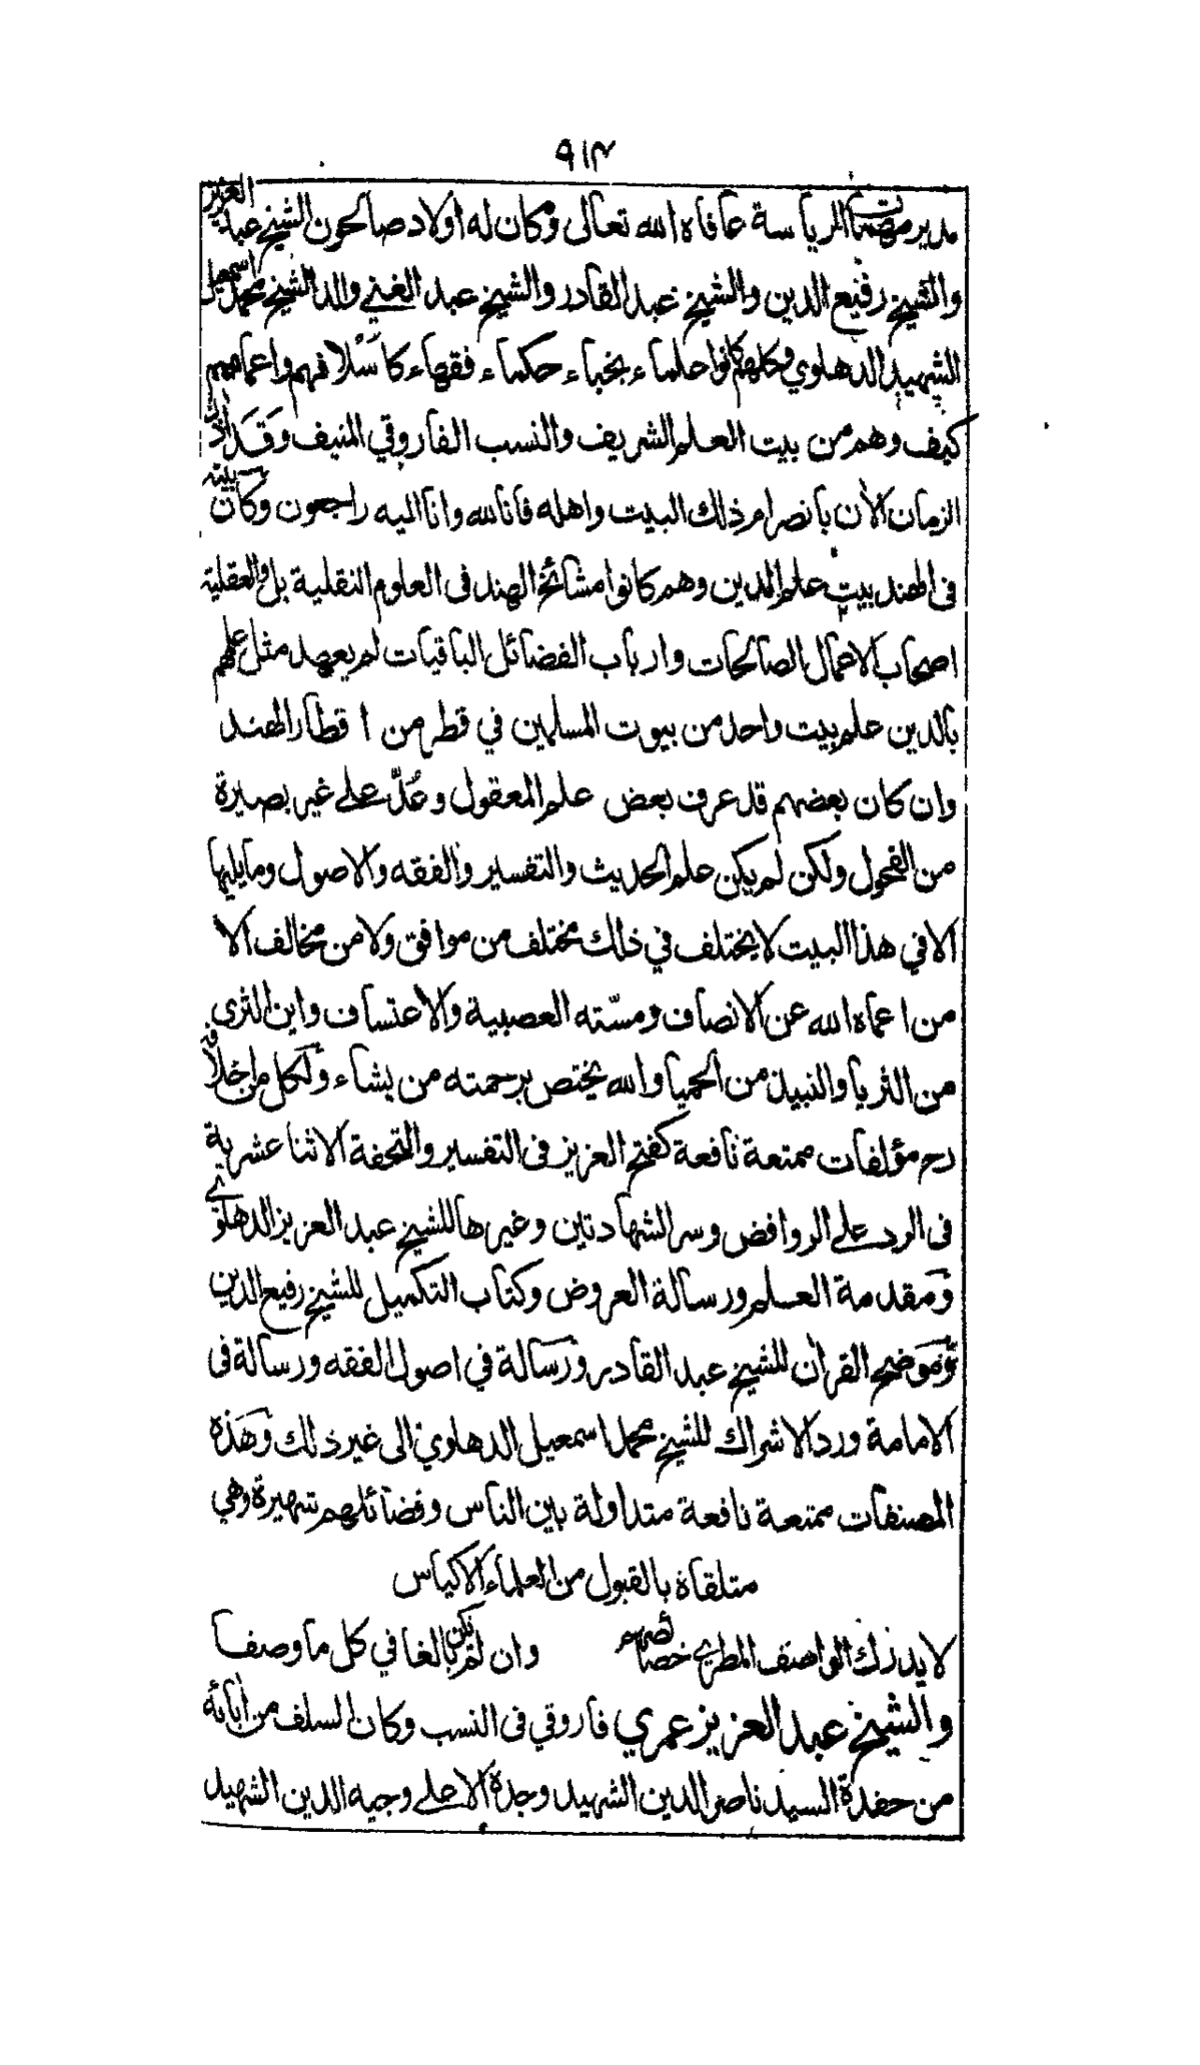 ٩١٣
مدير مهمات الرياسة عافاه الله تعالى وكان له اولاد صالحون الشيخ عبد العزيز
والشيخ رفيع الدين والشيخ عبد القادر والشيخ عبد الغني والد الشيخ محمد اسمعيل
الشهيد الدهلوي وكلهم كانوا علماء نجباء حكماء فقهاء كاسلافهم واعمامهم
كيف وهم من بيت العلم الشريف والنسب الفاروقي المنيف وقد اذن
الزمان الآن بانصرام ذلك البيت واهله فانا لله وانا اليه راجعون وكان بيته
فى الهند بيت علم الدين وهم كانوا مشائخ الهند فى العلوم النقلية بل والعقلية
اصحاب الاعمال الصالحات وارباب الفضائل الباقيات لم يعهد مثل علمهم
بالدين علم بيت واحد من بيوت المسلمين في قطر من اقطار الهند
وان كان بعضهم قد عرف بعض علم المعقول وعُدّ على غير بصيرة
من الفحول ولكن لم يكن علم الحديث والتفسير والفقه والاصول وما يليها
الا في هذا البيت لا يختلف في ذلك مختلف من موافق ولا من مخالف الا
من اعماه الله عن الانصاف ومسّته العصبية والاعتساف واين الثرى
من الثريا والنبيذ من الحميا والله يختص برحمته من يشاء ولكل من اخلافه
رح مؤلفات ممتعة نافعة كفتح العزيز فى التفسير والتحفة الاثنا عشرية
فى الرد على الروافض وسر الشهادتين وغيرها للشيخ عبد العزيز الدهلوي
ومقدمة العلم ورسالة العروض وكتاب التكميل للشيخ رفيع الدين
وموضح القران للشيخ عبد القادر ورسالة في اصول الفقه ورسالة فى
الامامة ورد الاشراك للشيخ محمد اسمعيل الدهلوي الى غير ذلك وهذه
المصنفات ممتعة نافعة متداولة بين الناس وفضائلهم شهيرة وهي
متلقاة بالقبول من العلماء الاكياس
لا يدرك الواصف المطري خصائصهم وان لم يكن بالغا في كل ما وصفا
والشيخ عبد العزيز عمري فاروقي فى النسب وكان السلف من ابائه
من حفدة السيد ناصر الدين الشهيد وجده الاعلى وجيه الدين الشهيد